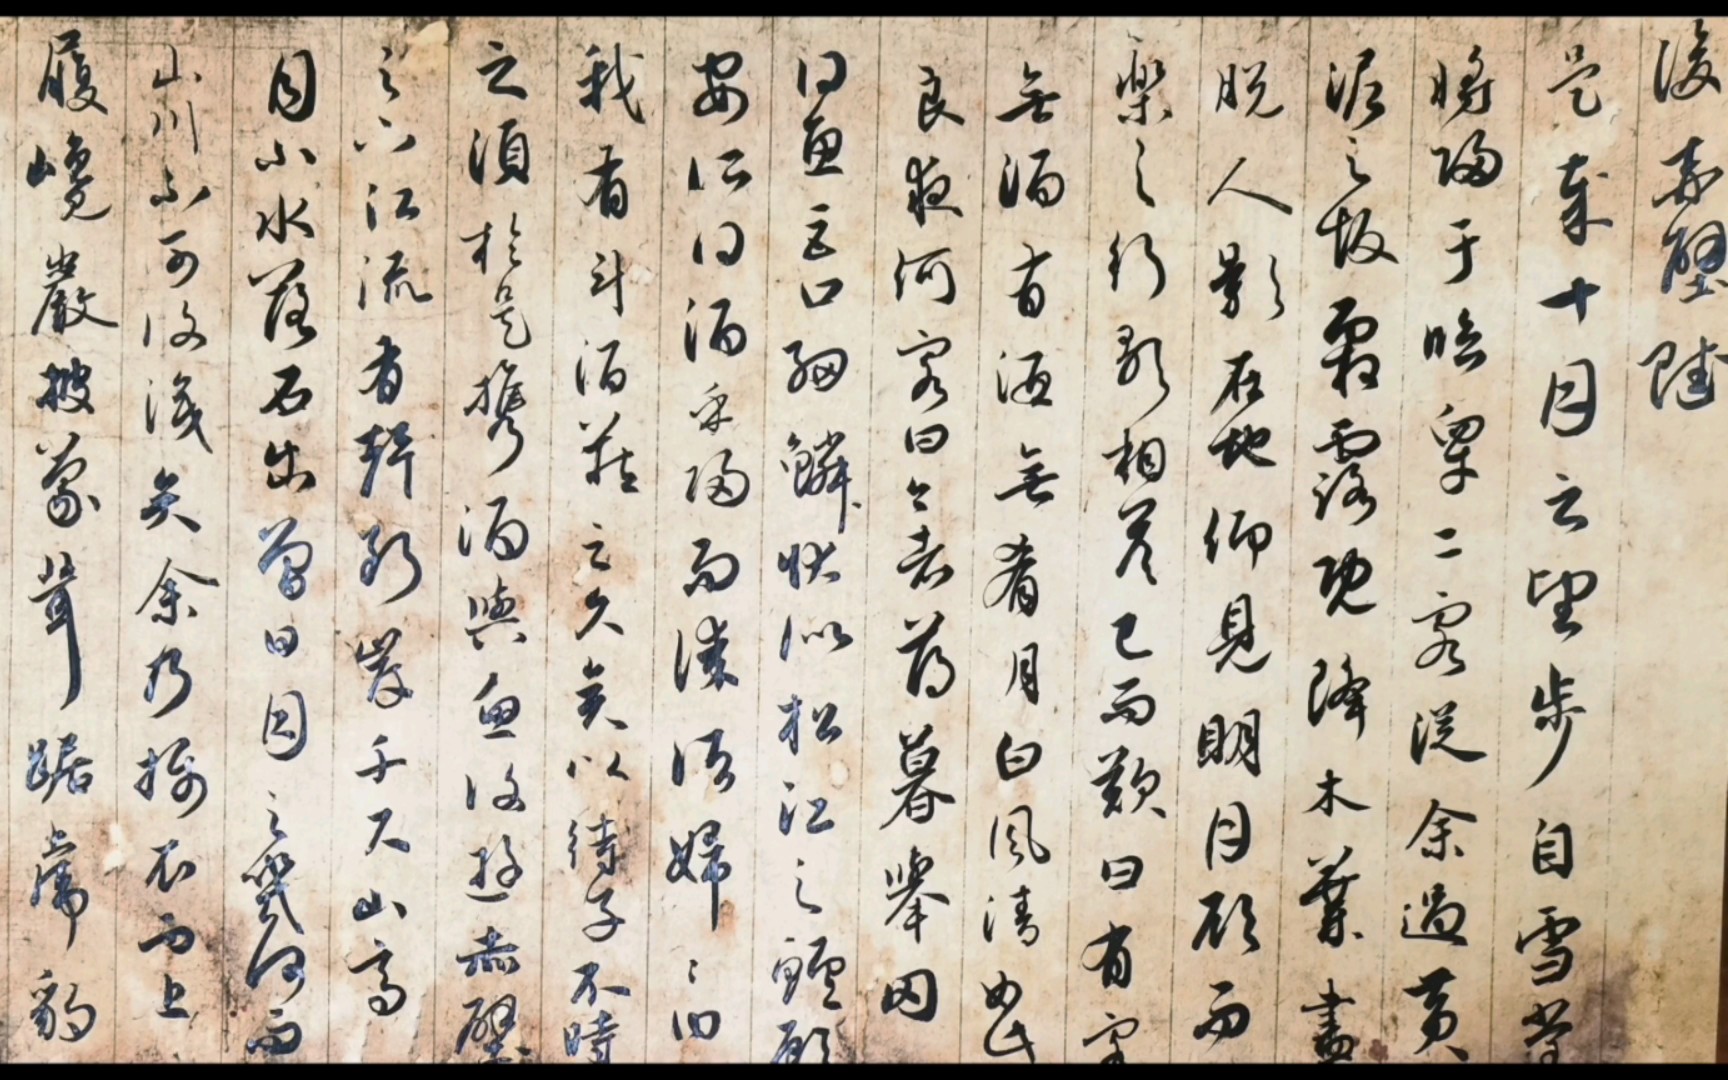 後赤壁賦
是歲十月之望步自雪堂
將歸于臨皋二客從余過黃
泥之坂霜露既降木葉盡
脫人影在地仰見明月顧而
樂之行歌相答已而歎曰有客
無酒有酒無肴月白風清如此
良夜何客曰今者薄暮舉网
得魚巨口細鱗狀似松江之鱸顧
安所得酒乎歸而謀諸婦婦曰
我有斗酒藏之久矣以待子不時
之須於是攜酒與魚復遊赤壁
之下江流有聲斷岸千尺山高
月小水落石出曾日月之幾何而
山川不可復識矣余乃攝衣而上
履巉巖披蒙茸踞虎豹